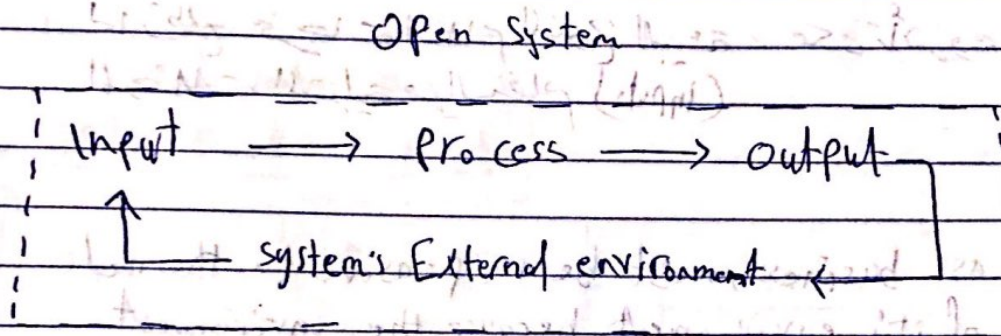 Open System
Input → Process → Output
System's External environment